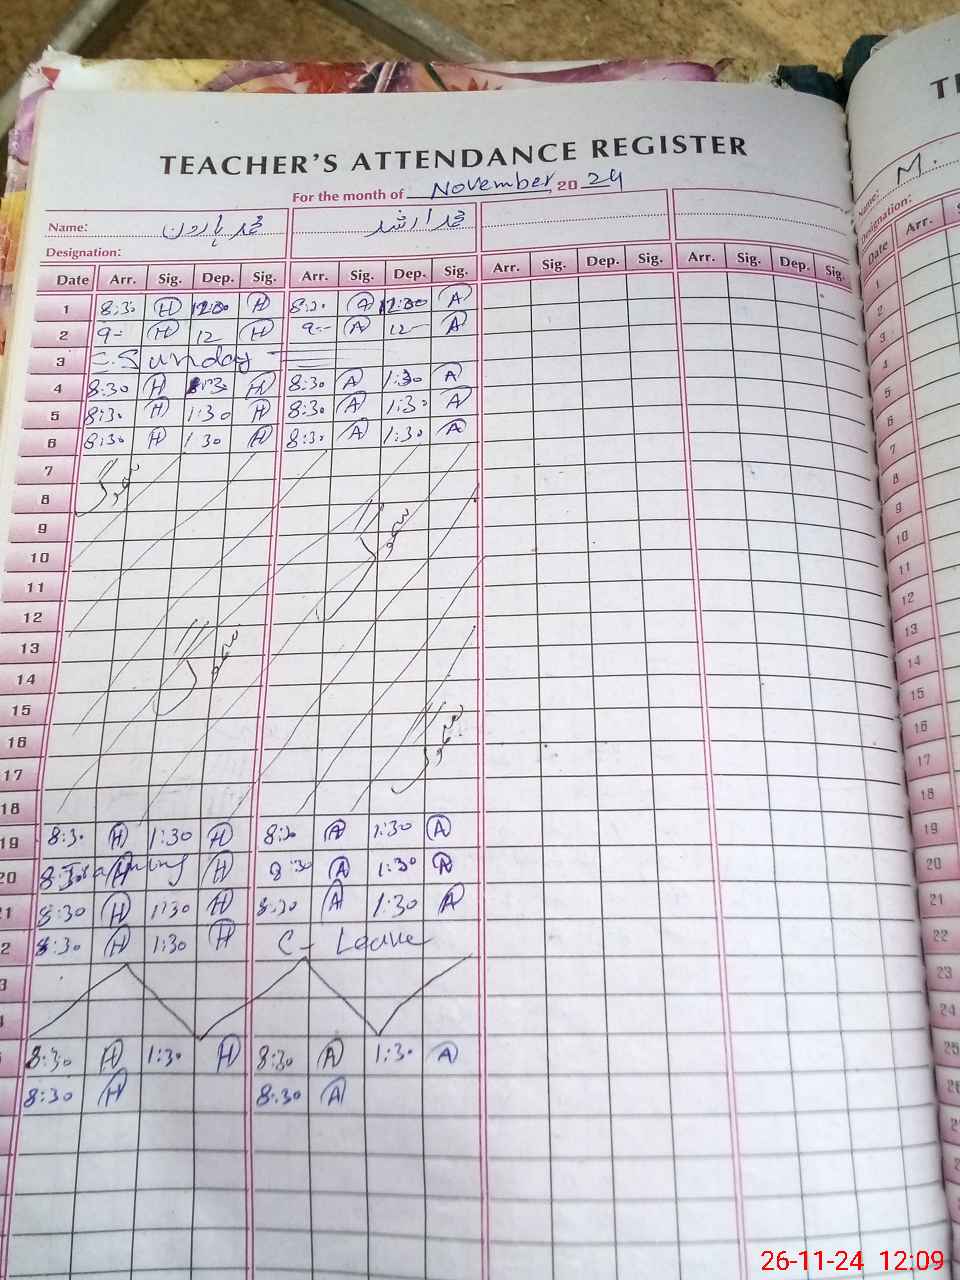 TEACHER'S ATTENDANCE REGISTER
For the month of November 2024
Name: محمد ہارون محمد ارشد
Designation:
Date Arr. Sig. Dep. Sig. Arr. Sig. Dep. Sig. Arr. Sig. Dep. Sig. Arr. Sig. Dep. Sig.
1 8:30 H 12:30 H 8:30 A 12:30 A
2 9- H 12 H 9- A 12- A
3 Sunday
4 8:30 H 1:30 H 8:30 A 1:30 A
5 8:30 H 1:30 H 8:30 A 1:30 A
6 8:30 H 1 30 H 8:30 A 1:30 A
7
8
9
10
11
12
13
14
15
16
17
18
19 8:30 H 1:30 H 8:30 A 1:30 A
20 Training H 8:30 A 1:30 A
21 8:30 H 1:30 H 8:30 A 1:30 A
2 8:30 H 1:30 H C- Leave
3
8:30 H 1:30 H 8:30 A 1:30 A
8:30 H 8:30 A
M.
Name:
Designation:
Date Arr.
1
2
3
4
5
6
7
8
9
10
11
12
13
14
15
16
17
18
19
20
21
22
23
24
25
26
26-11-24 12:09